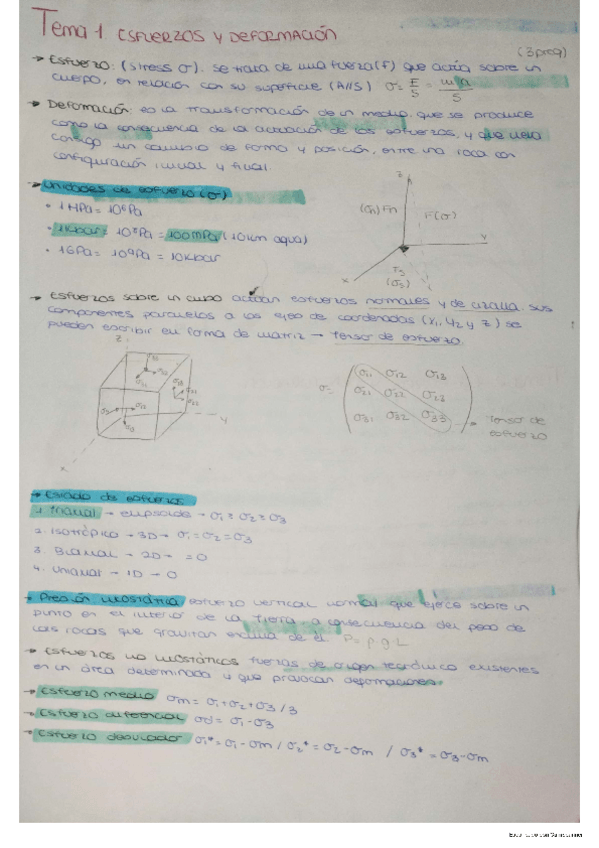 Tema 1 ESFUERZOS Y DEFORMACIÓN
(3preg)
→ Esfuerzo: (stress σ). se trata de una fuerza (F) que actúa sobre un
cuerpo, en relación con su superficie (A//S) σ = F/S = m·a/S
→ Deformación: es la transformación de un medio, que se produce
como la consecuencia de la actuación de los esfuerzos, y que lleva
consigo un cambio de forma y posición, entre una roca con
configuración inicial y final.
→ Unidades de esfuerzo (σ)
• 1 MPa = 10⁶Pa
• 1Kbar = 10⁸Pa = 100MPa (10km agua)
• 1GPa = 10⁹Pa = 10Kbar
z
(σn) Fn
F(σ)
y
x
(σs)
→ Esfuerzos sobre un cubo actúan esfuerzos normales y de cizalla. sus
componentes paralelos a los ejes de coordenadas (x, y z) se
pueden escribir en forma de matriz → Tensor de esfuerzo.
z
y
x
σ =
σ11 σ12 σ13
σ21 σ22 σ23
σ31 σ32 σ33
→ Tensor de
esfuerzo
→ Estado de esfuerzos
1. Triaxial → elipsoide → σ1 ≥ σ2 ≥ σ3
2. Isotrópico → 3D → σ1 = σ2 = σ3
3. Biaxial → 2D → = 0
4. Uniaxial → 1D → 0
→ Presión litostática esfuerzo vertical normal que ejerce sobre un
punto en el interior de la Tierra a consecuencia del peso de
las rocas que gravitan encima de él P = ρ g L
→ Esfuerzos no litostáticos fuerzas de origen tectónico existentes
en un área determinada y que provocan deformaciones.
→ Esfuerzo medio σm = σ1 + σ2 + σ3 / 3
→ Esfuerzo diferencial σd = σ1 - σ3
→ Esfuerzo desviador σ1* = σ1 - σm / σ2* = σ2 - σm / σ3* = σ3 - σm